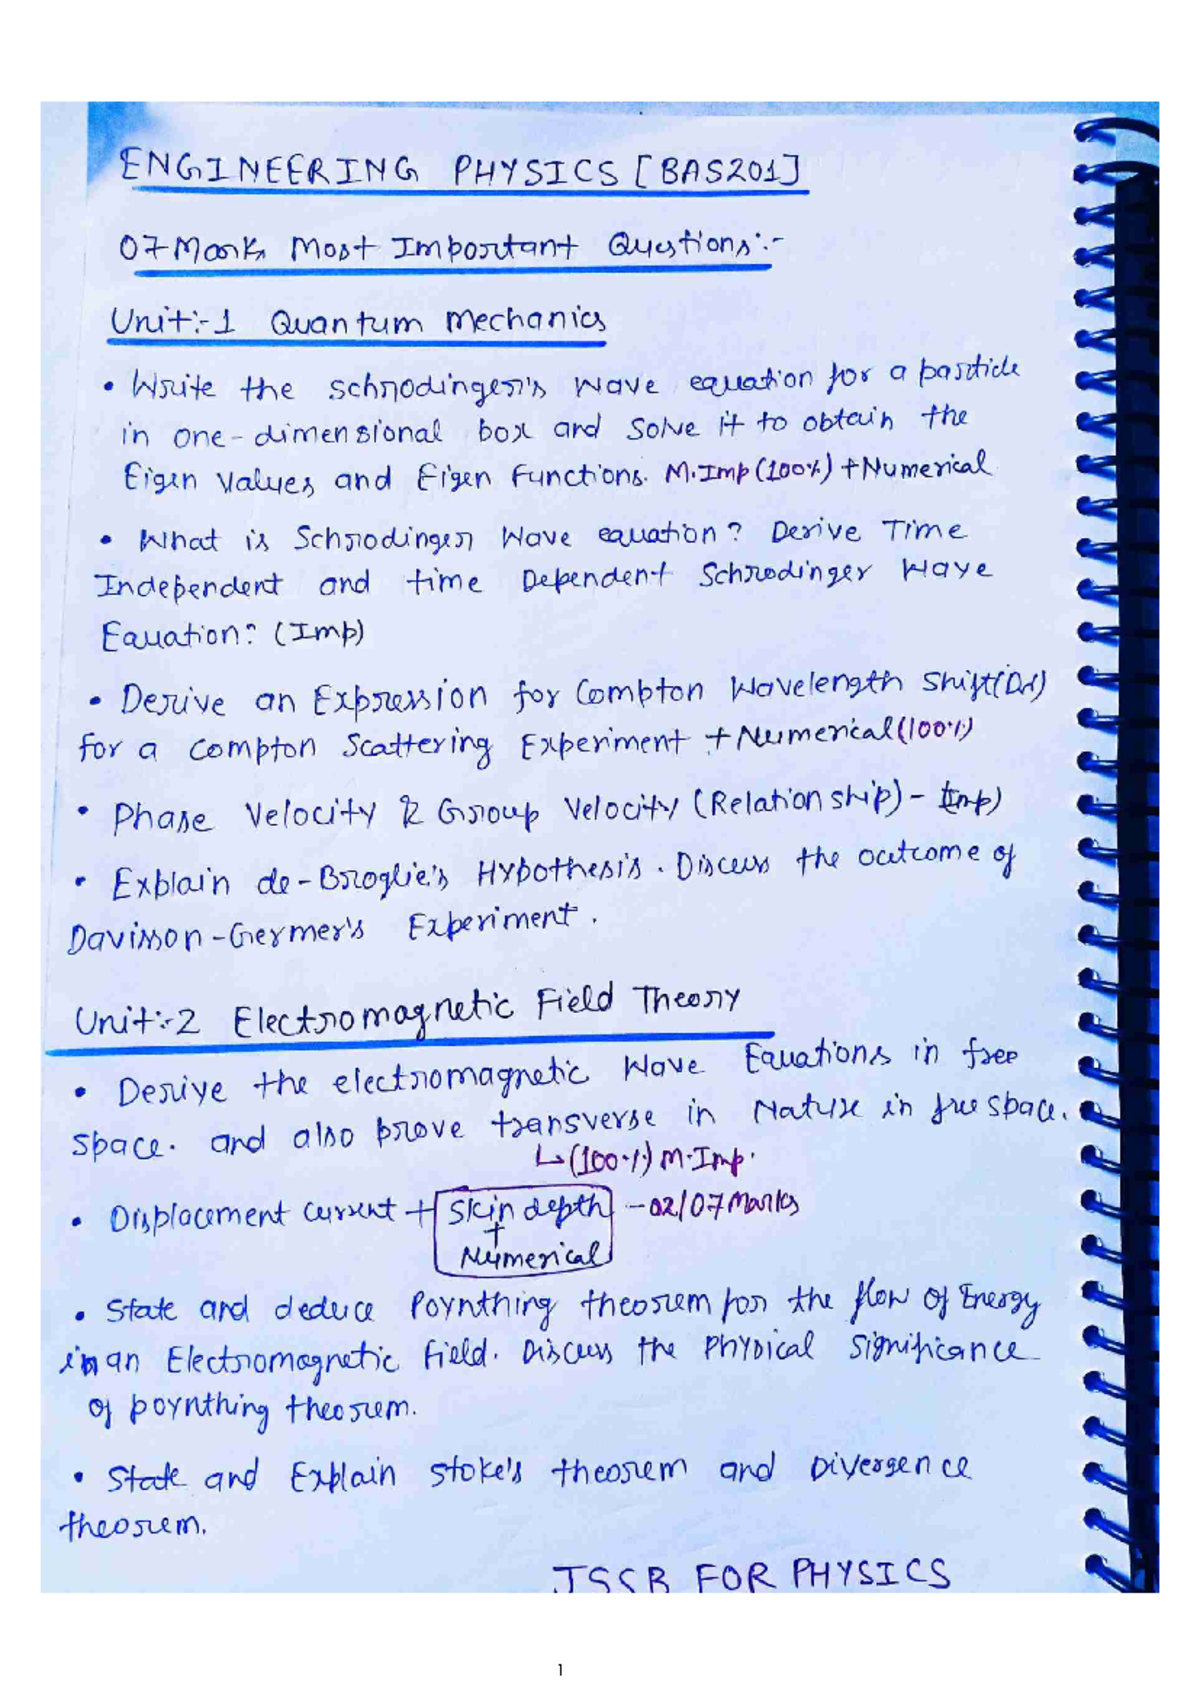 ENGINEERING PHYSICS [BAS201]
07 Marks Most Important Questions:-
Unit:-1 Quantum Mechanics
• Write the schrodinger's wave equation for a particle
in one-dimensional box and solve it to obtain the
Eigen Values and Eigen Functions. M.Imp (100%) + Numerical
• What is Schrodinger Wave equation? Derive Time
Independent and time Dependent Schrodinger Wave
Equation? (Imp)
• Derive an Expression for Compton Wavelength Shift(Δλ)
for a Compton Scattering Experiment + Numerical (100%)
• Phase Velocity & Group Velocity (Relationship) - (Imp)
• Explain de-Broglie's Hypothesis. Discuss the outcome of
Davisson-Germer's Experiment.
Unit:-2 Electromagnetic Field Theory
• Derive the electromagnetic Wave Equations in free
space. and also prove transverse in Nature in free space.
↳ (100%) M.Imp.
• Displacement current + Skin depth - 02/07 Marks
+
Numerical
• State and deduce Poynthing theorem for the flow of Energy
in an Electromagnetic Field. Discuss the Physical Significance
of poynthing theorem.
• State and Explain stoke's theorem and Divergence
theorem.
JSSB FOR PHYSICS
1